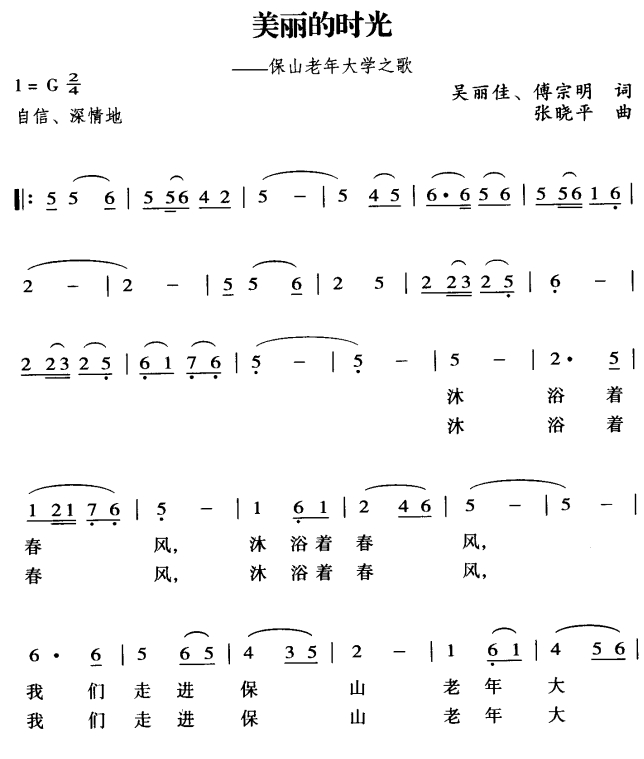 美丽的时光
——保山老年大学之歌
1 = G 2/4
吴丽佳、傅宗明 词
自信、深情地
张晓平 曲
‖: 5 5 6 | 5 56 4 2 | 5 － | 5 4 5 | 6· 6 5 6 | 5 56 1 6 |
2 － | 2 － | 5 5 6 | 2 5 | 2 23 2 5 | 6 － |
2 23 2 5 | 6 1 7 6 | 5 － | 5 － | 5 － | 2· 5 |
沐 浴 着
沐 浴 着
1 21 7 6 | 5 － | 1 6 1 | 2 4 6 | 5 － | 5 － |
春 风， 沐 浴 着 春 风，
春 风， 沐 浴 着 春 风，
6· 6 | 5 6 5 | 4 3 5 | 2 － | 1 6 1 | 4 5 6 |
我 们 走 进 保 山 老 年 大
我 们 走 进 保 山 老 年 大